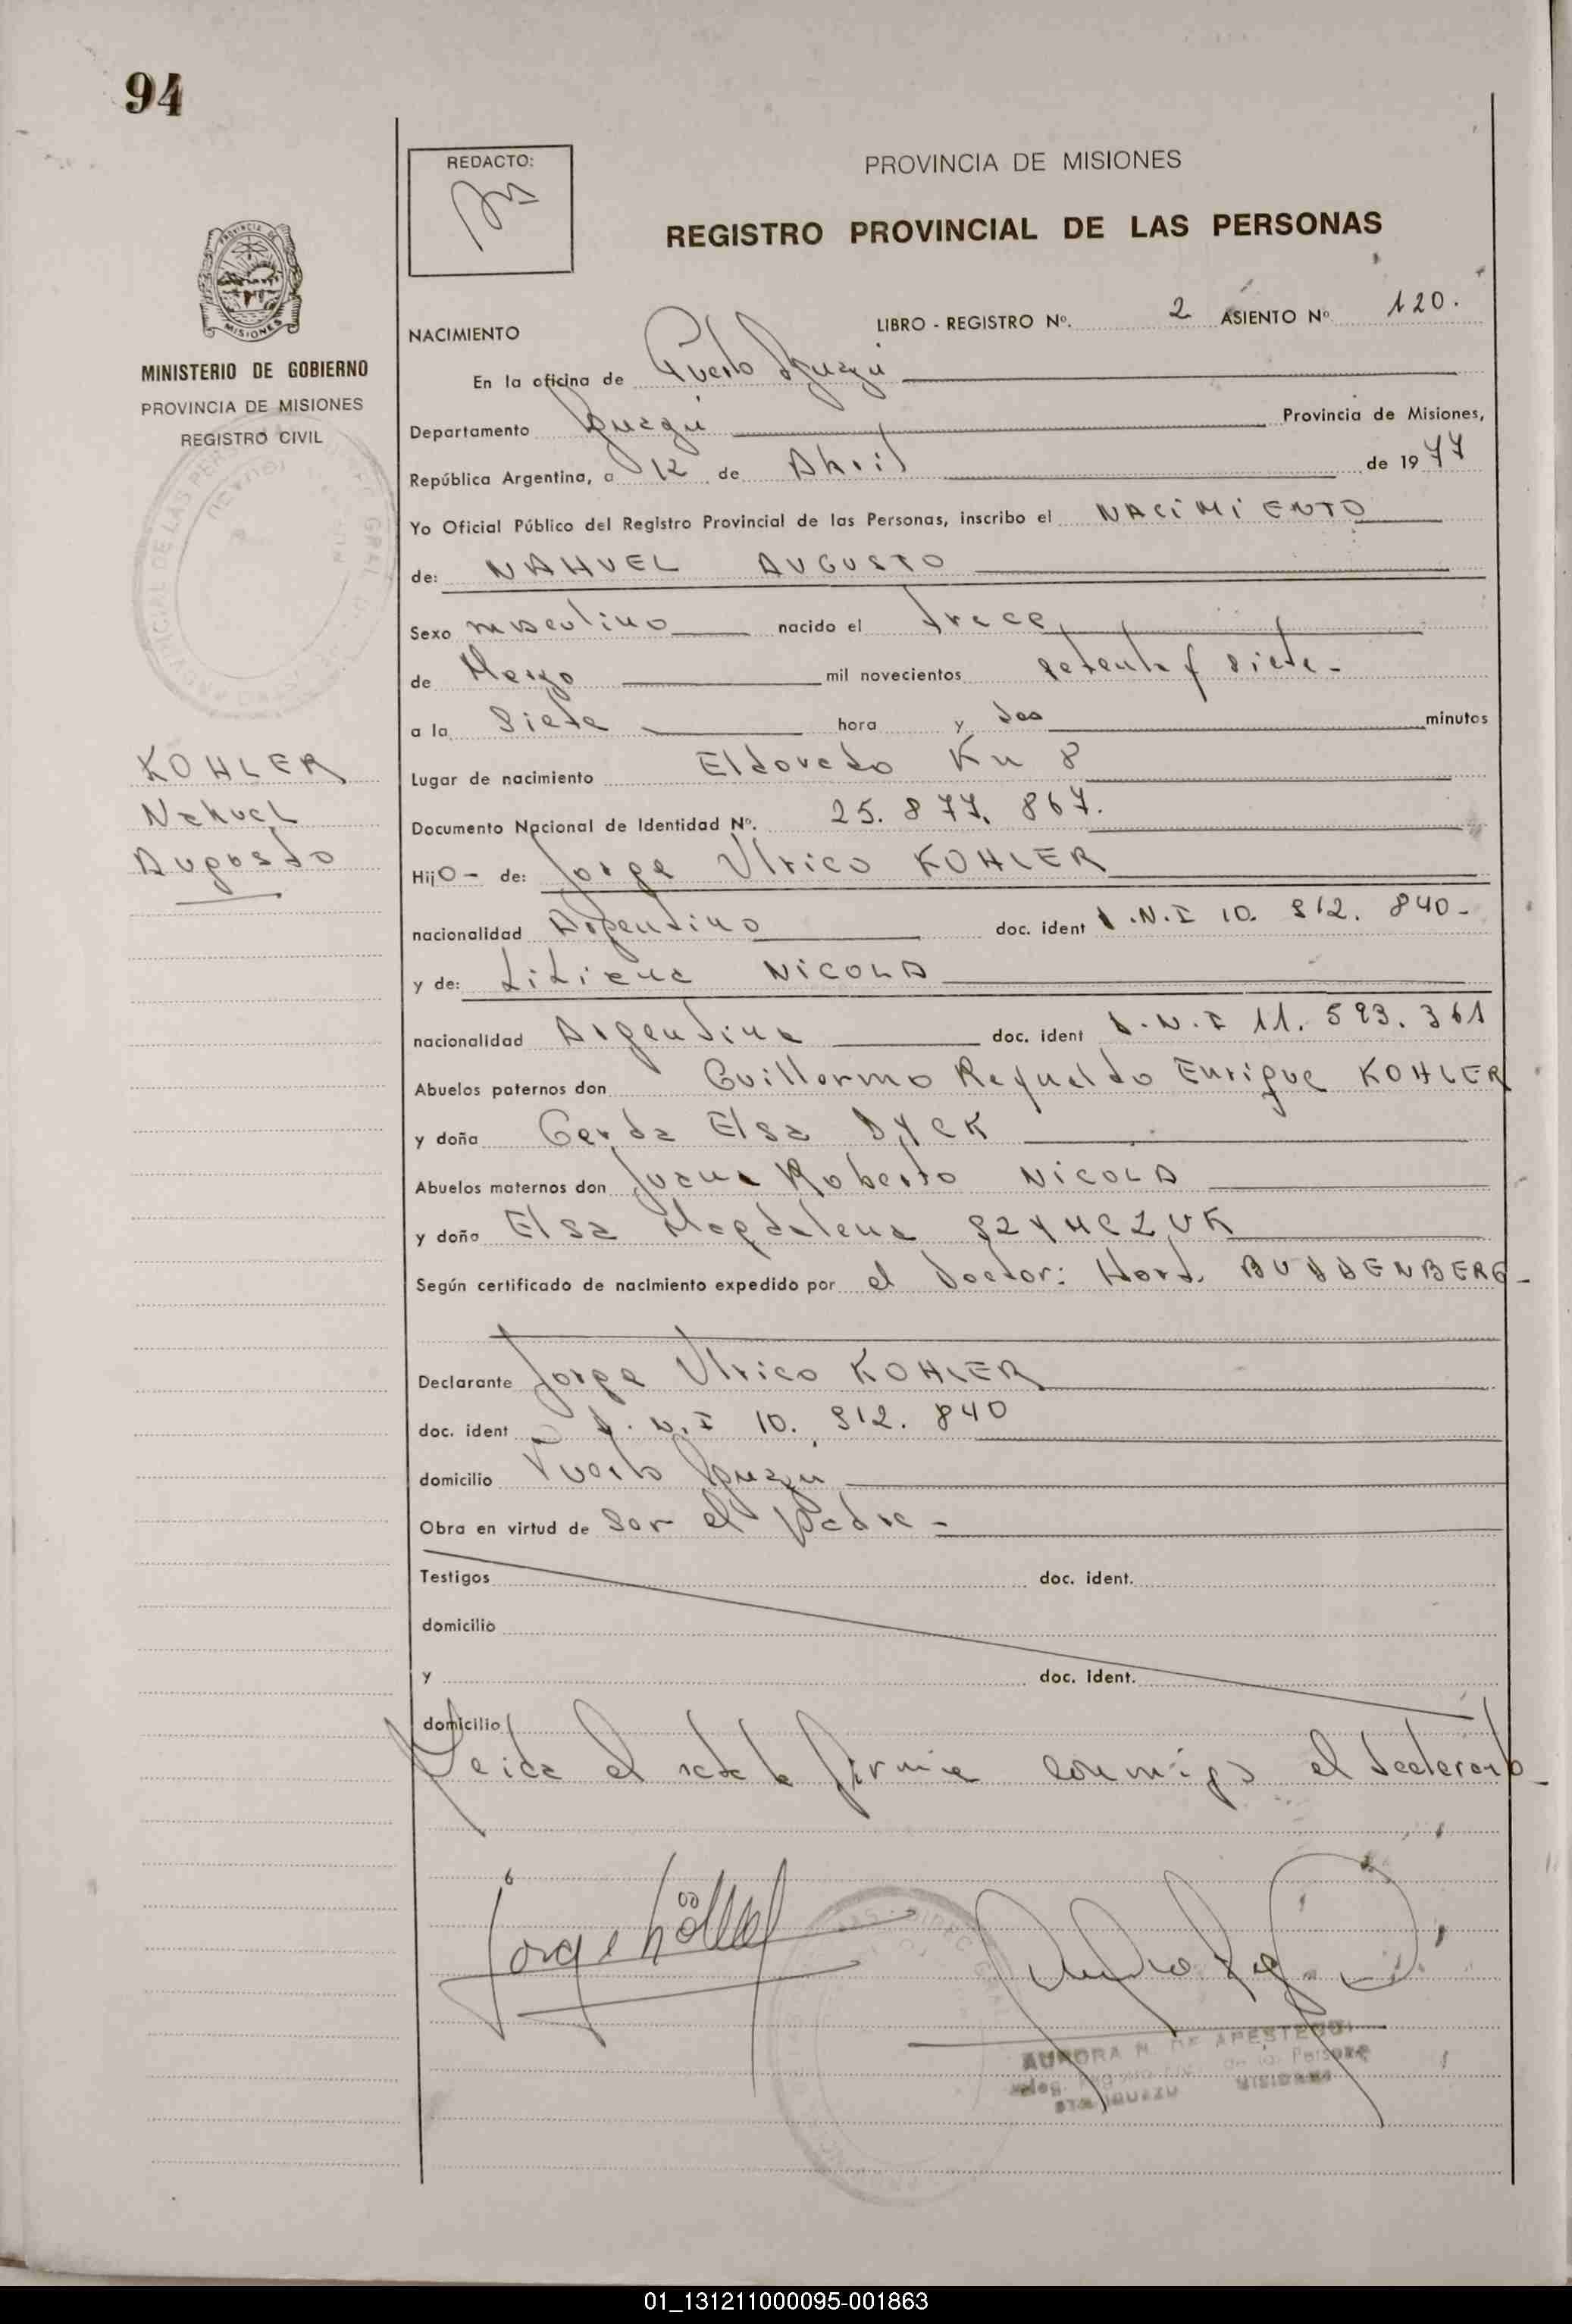 94
REDACTO:
PROVINCIA DE MISIONES
REGISTRO PROVINCIAL DE LAS PERSONAS
MISIONES
MINISTERIO DE GOBIERNO
PROVINCIA DE MISIONES
REGISTRO CIVIL
NACIMIENTO
LIBRO - REGISTRO Nº. 2 ASIENTO Nº 120.
En la oficina de Puerto Iguazú
Departamento Iguazú Provincia de Misiones,
República Argentina, a 12 de Abril de 1977
Yo Oficial Público del Registro Provincial de las Personas, inscribo el NACIMIENTO
de: NAHUEL AUGUSTO
Sexo masculino nacido el trece
de Marzo mil novecientos setenta y siete-
a la siete hora y dos minutos
KOHLER
Nahuel
Augusto
Lugar de nacimiento Eldorado Km 8
Documento Nacional de Identidad Nº. 25.877.867.
Hijo- de: Jorge Ulrico KOHLER
nacionalidad Argentino doc. ident D.N.I 10.912.840-
y de: Liliana NICOLA
nacionalidad Argentina doc. ident D.N.I 11.593.361
Abuelos paternos don Guillermo Enrique KOHLER
y doña Gerda Elsa DYCK
Abuelos maternos don Juan Roberto NICOLA
y doña Elsa Magdalena SZYMCZUK
Según certificado de nacimiento expedido por el Doctor: Horst. BUDDENBERG-
Declarante Jorge Ulrico KOHLER
doc. ident D.N.I 10.912.840
domicilio Puerto Iguazú
Obra en virtud de ser el padre-
Testigos doc. ident.
domicilio
y doc. ident.
domicilio
Leida el acta la firma conmigo el declarante-
Jorge Köhler
AURORA N. DE APESTEGUI
01_131211000095-001863